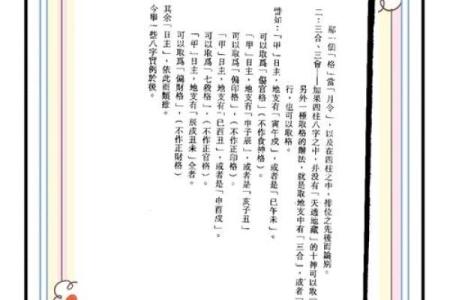 那一個「格」當「月令」，以及在四柱之中，排位之先後而論別。
二：三合、三會——如果四柱八字之中，并沒有「天透地藏」的十神可以取
另外一種取格的辦法，就是取地支中有「三合」，或者
行，也可以取格。
譬如：「甲」日主，地支有「寅午戌」，或者是「巳午未」。
可以取爲「傷官格」（不作食神格）。
「甲」日主，地支有「申子辰」，或者是「亥子丑」
可以取爲「偏印格」，（不作正印格）。
「甲」日主，地支有「巳酉丑」，或者是「申酉戌」。
可以取爲「七殺格」，（不作正官格）。
「甲」日主，地支有「辰戌丑未」全者。
可以取爲「偏財格」，（不作正財格）
其余「日主」，依此而類推。
今舉一些八字實例於後。